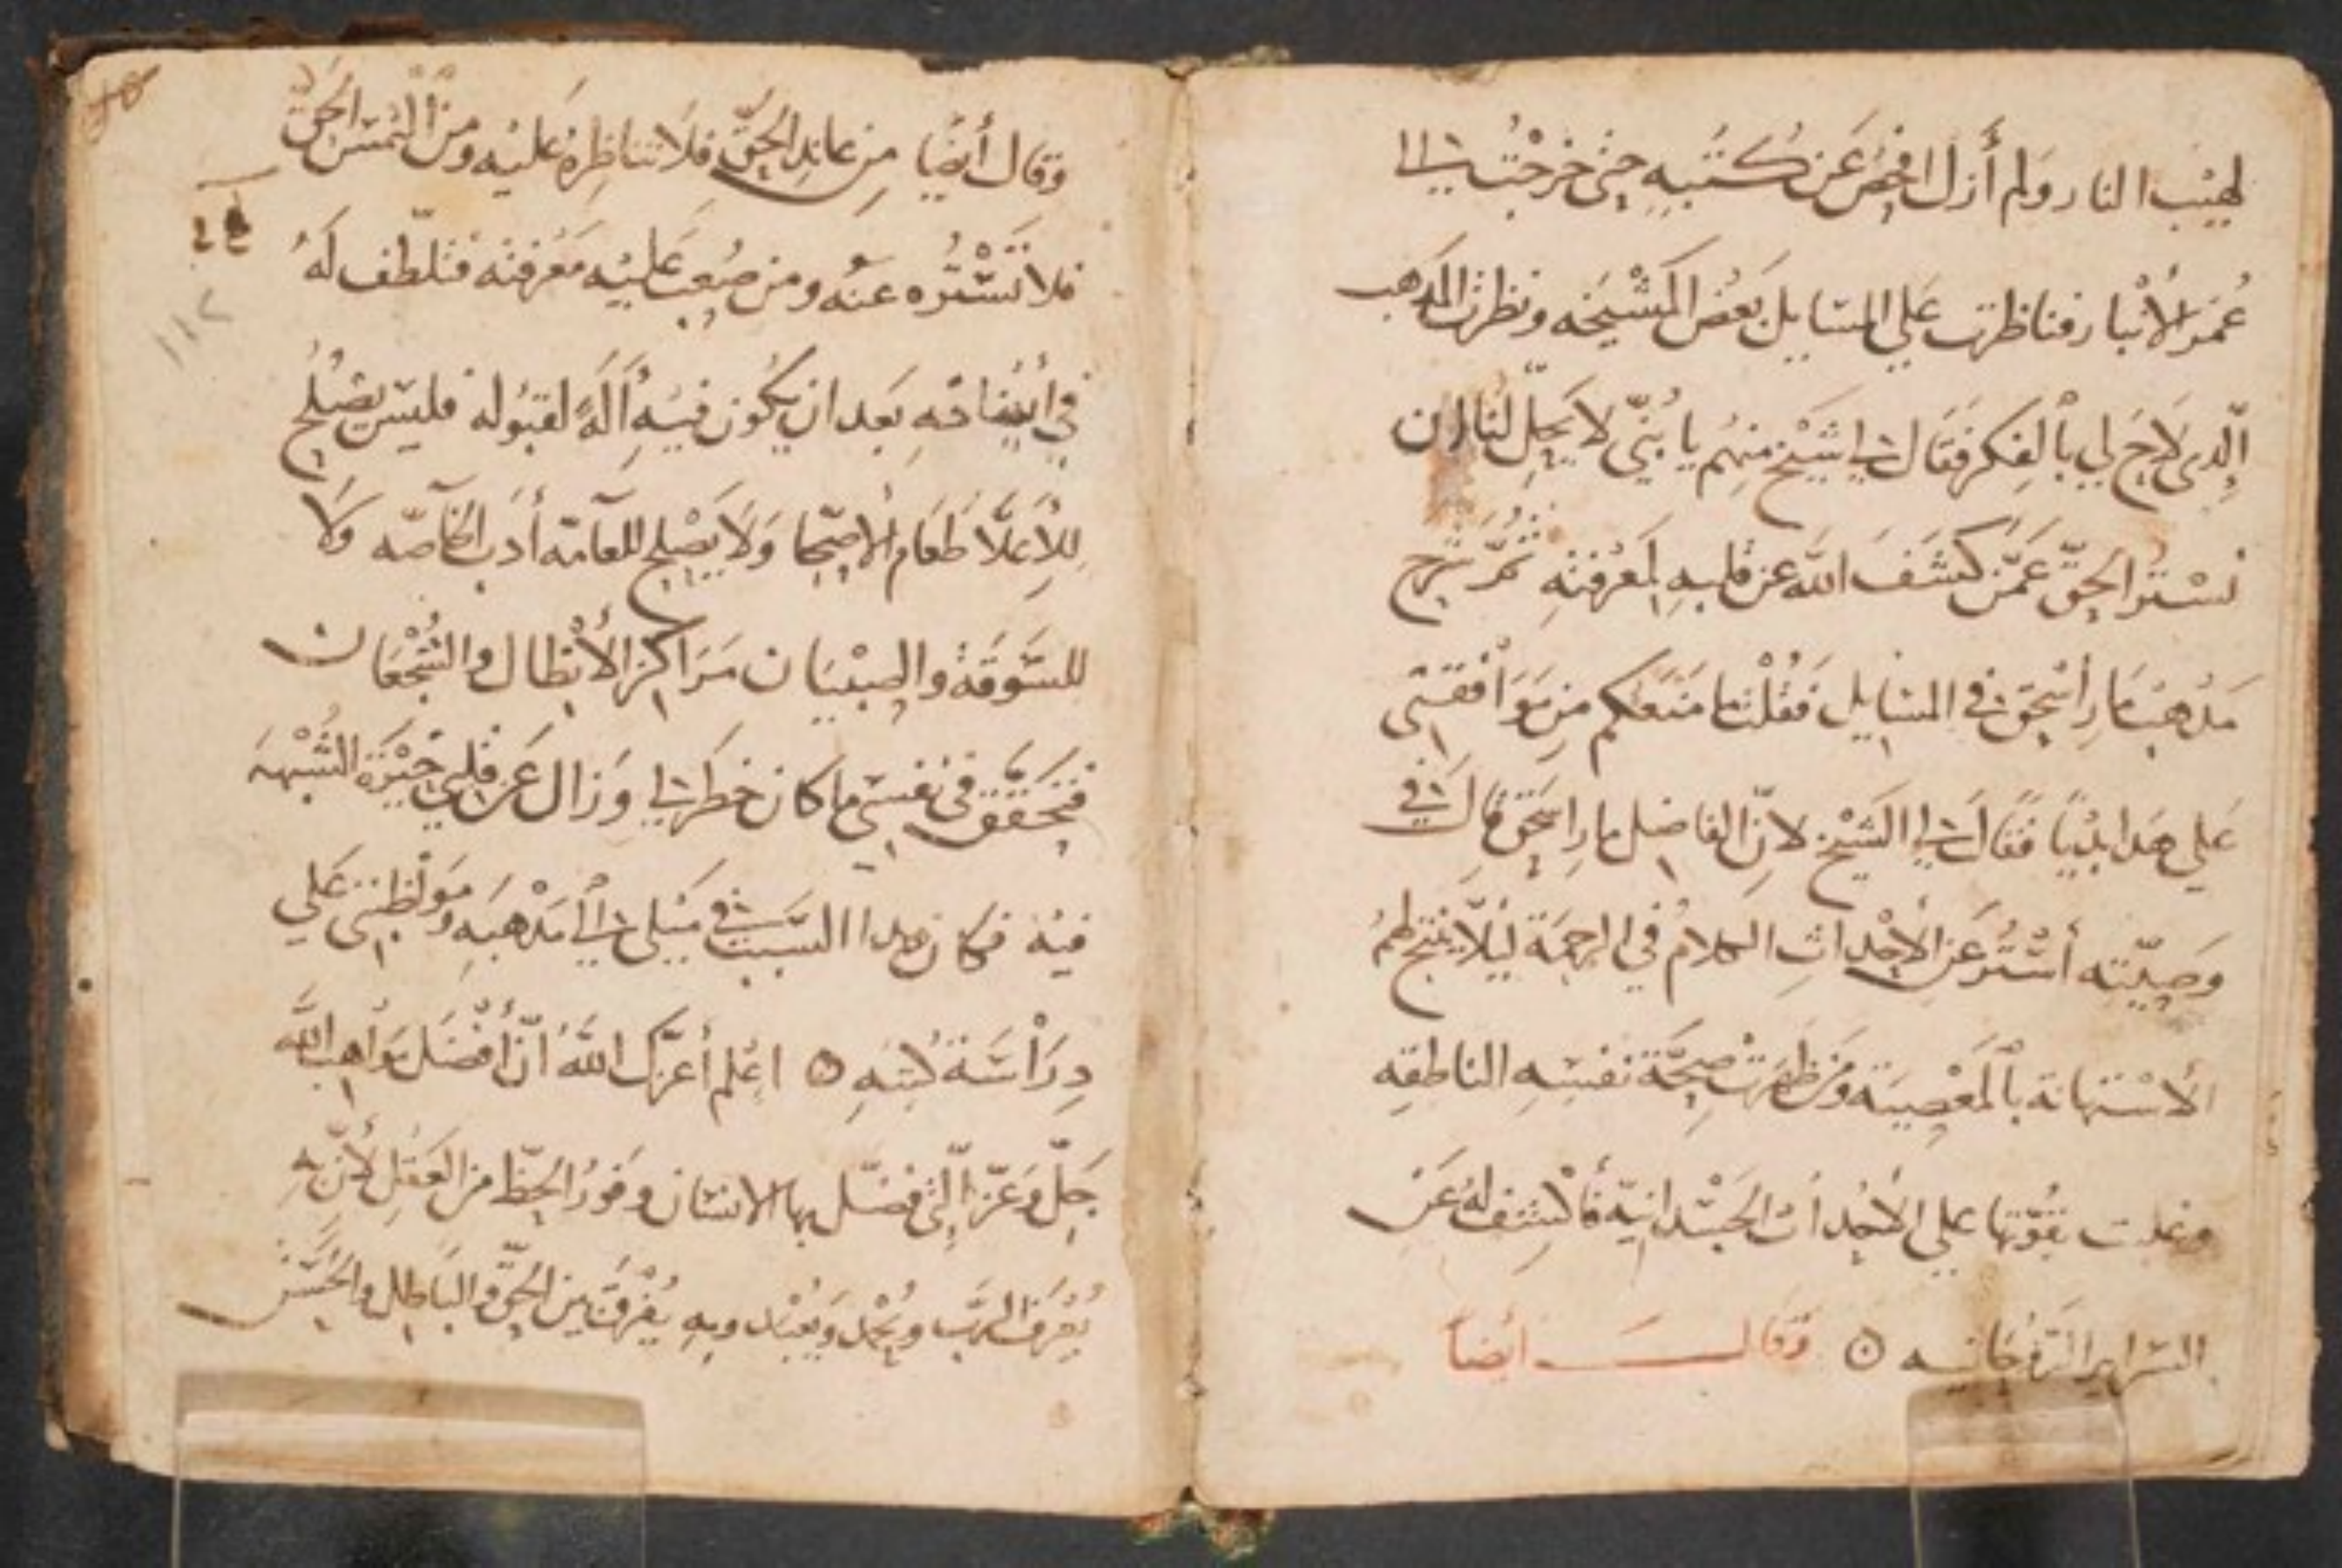 لهيب النار ولم أزل افحص عن كتبه حتى خرجت الى
عُمر الأنبار فناظرت علي المسايل بعض المشيخه ونظرت المدهب
الّدى لاح لي بالفكر فقال لي شيخ منهم يا بُنيّ لا يحلّ لنا ان
نستر الحقّ عمّن كشف الله عن قلبه لمعرفته ثمّ شرح
مدهب مار اسحق في المسايل فقلت ما منعكم من موافقتى
علي هدا بديًا فقال لي الشيخ لانّ الفاضل مار اسحق قال في
وصيّته أستُر عن الأحداث الكلام في الرحمة ليلّا ينتج لهم
الاستهانة بالمعصية ومن ظهرت صحّة نفسه الناطقه
وغلبت بقوّتها علي الأحداث الجسدانيّة فأكشف له عن
السراير الروحانيه ۞ وقال أيضاً
وقال أيضًا من عاند الحقّ فلا تناظره عليه ومن ألتمس الحق
فلا تستره عنه ومن صعب عليه معرفته فتلطّف له
في أيضاحه بعد ان يكون فيه اَلَهً لقبوله فليس يصلح
للأعلّا طعام الأصحا ولا يصلح للعامّة أدب الخاصّه ولا
للسّوقة والصبيان مراكز الأبطال والشجعان
فتحقّق في نفسي ما كان خطر لي وزال عن قلبي حيرة الشبهه
فيه فكان هدا السبب في ميلي الى مدهبه ومواظبتى علي
دراسة كتبه ۞ اعلم أعزّك الله انّ أفضل مواهب الله
جلّ وعزّ الّتى فضّل بها الانسان وفور الحظّ من العقل لأنّ به
يُعرف الربّ ويُحمد ويُعبد وبه يُفرق بين الحقّ والباطل والحسن